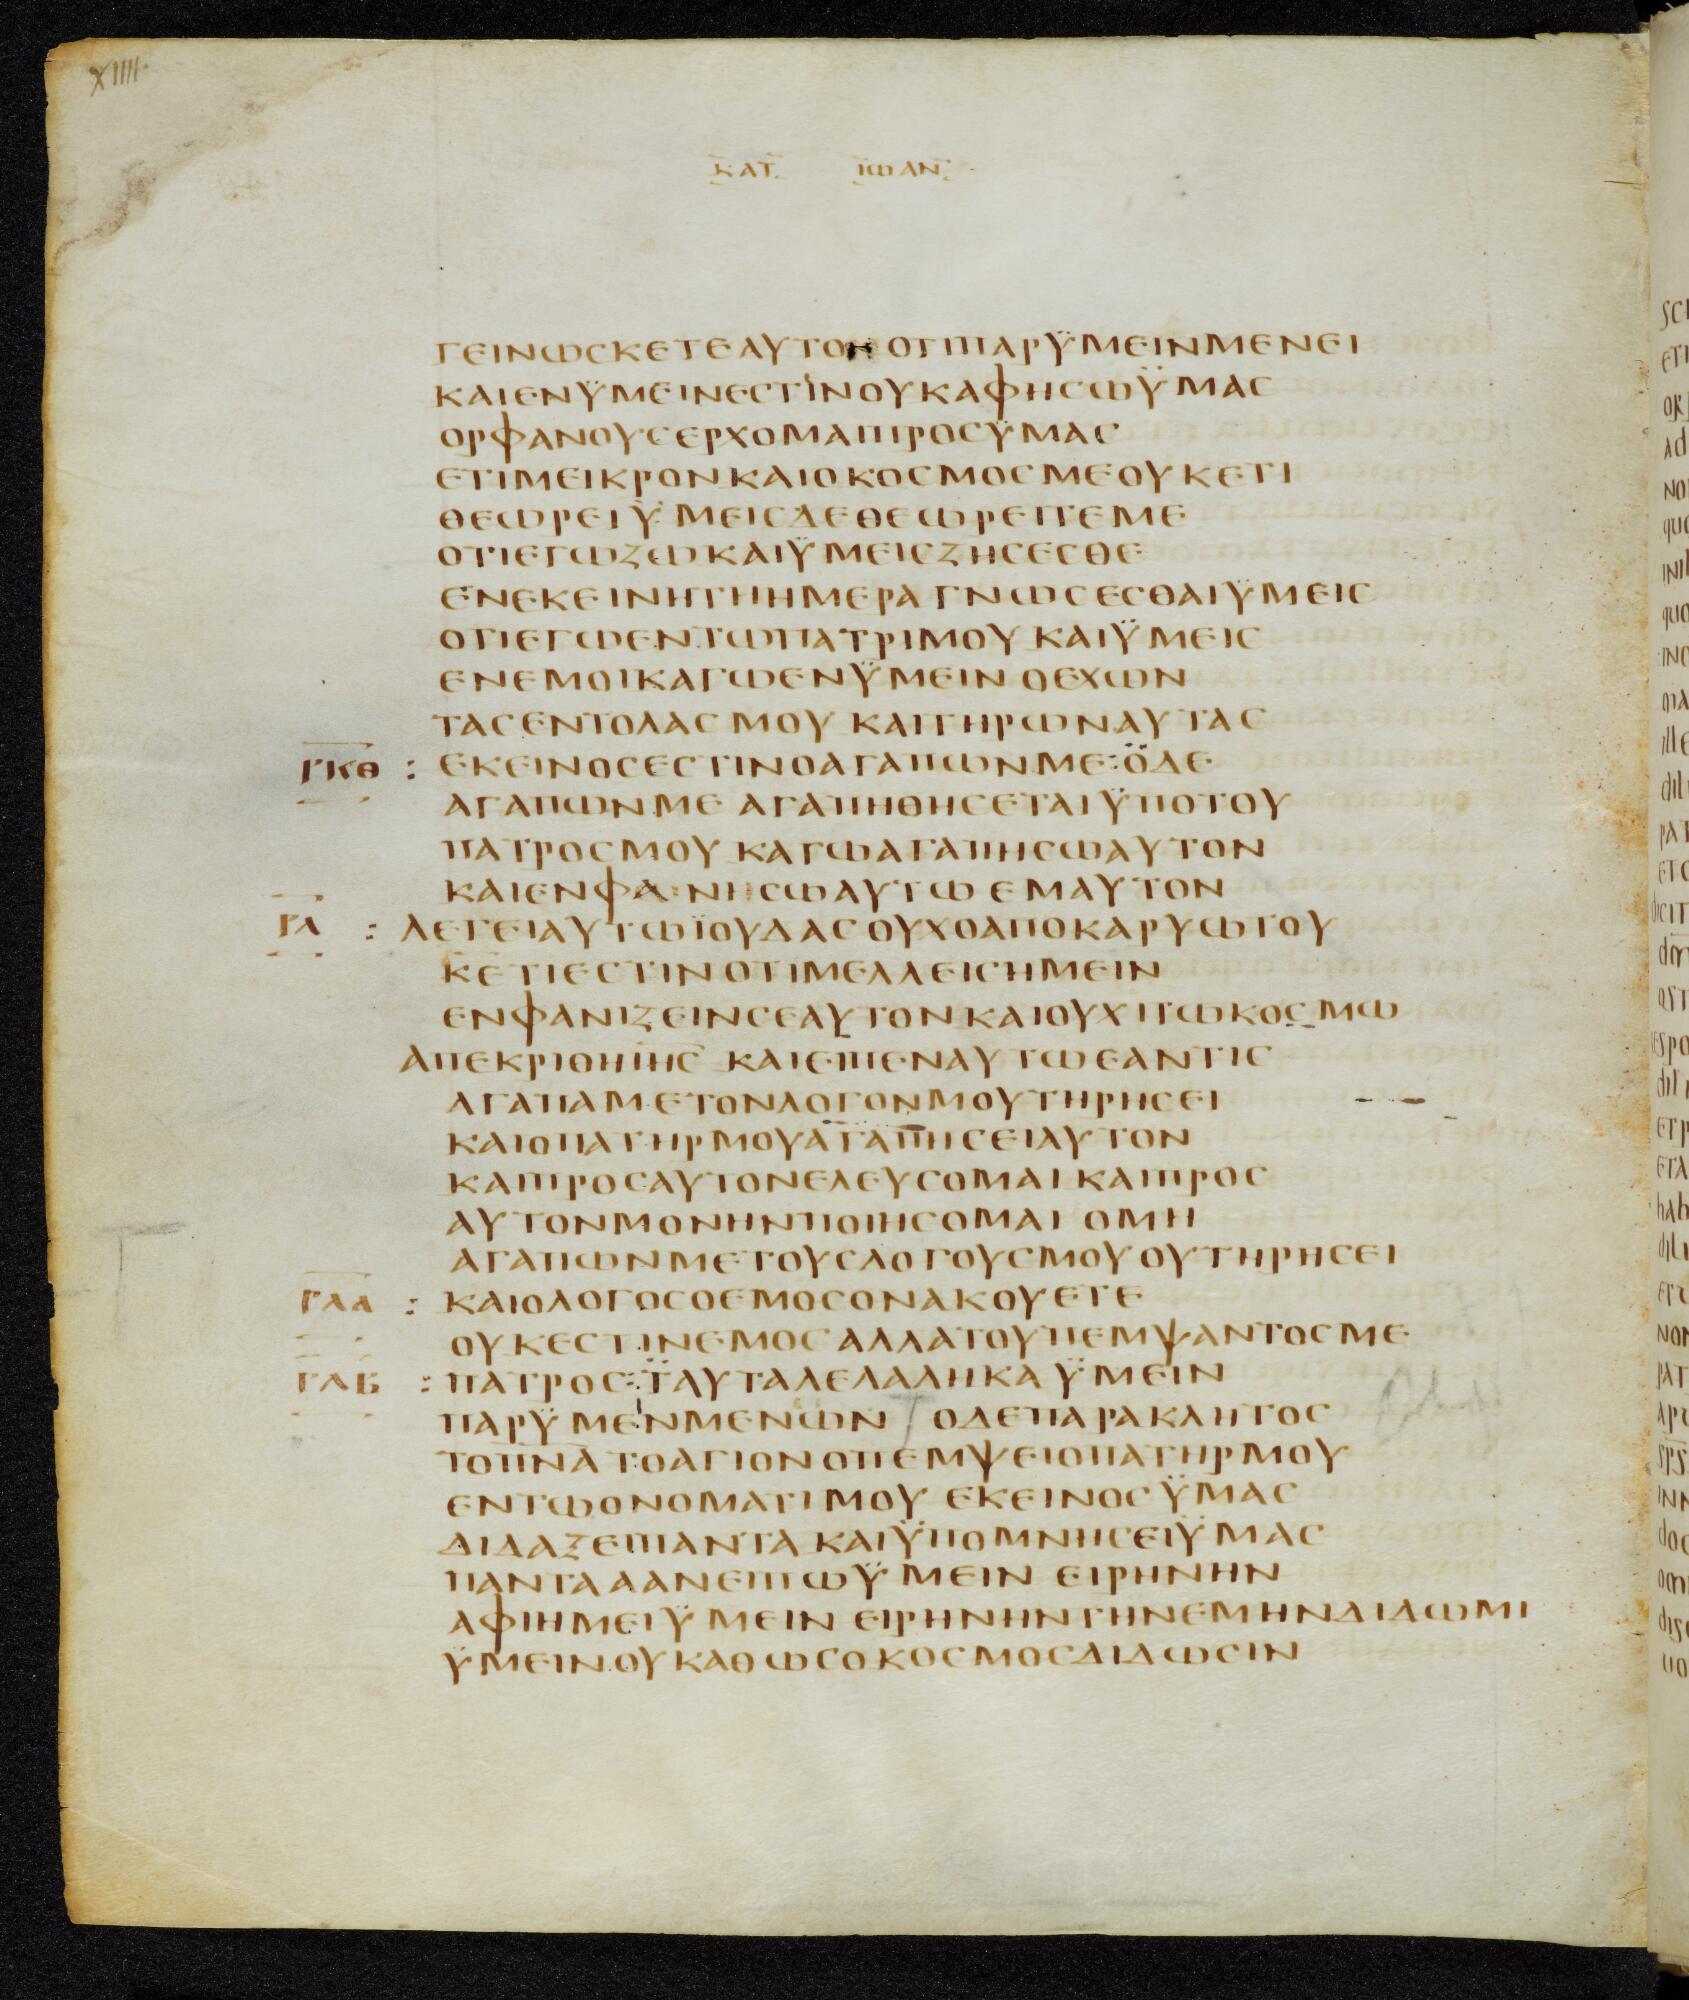 XIIII
ΚΑΤ ΙΩΑΝ
ΓΕΙΝΩΣΚΕΤΕΑΥΤΟΝ ΟΤΙΠΑΡΫΜΕΙΝΜΕΝΕΙ
ΚΑΙΕΝΫΜΕΙΝΕΣΤΙΝΟΥΚΑΦΗΣΩΫΜΑΣ
ΟΡΦΑΝΟΥΣΕΡΧΟΜΑΙΠΡΟΣΫΜΑΣ
ΕΤΙΜΕΙΚΡΟΝΚΑΙΟΚΟΣΜΟΣΜΕΟΥΚΕΤΙ
ΘΕΩΡΕΙΫΜΕΙΣΔΕΘΕΩΡΕΙΤΕΜΕ
ΟΤΙΕΓΩΖΩΚΑΙΫΜΕΙΣΖΗΣΕΣΘΕ
ΕΝΕΚΕΙΝΗΤΗΗΜΕΡΑ ΓΝΩΣΕΣΘΑΙΫΜΕΙΣ
ΟΤΙΕΓΩΕΝΤΩΠΑΤΡΙΜΟΥ ΚΑΙΫΜΕΙΣ
ΕΝΕΜΟΙΚΑΓΩΕΝΫΜΕΙΝ ΟΕΧΩΝ
ΤΑΣΕΝΤΟΛΑΣΜΟΥ ΚΑΙΤΗΡΩΝΑΥΤΑΣ
ΓΚΘ : ΕΚΕΙΝΟΣΕΣΤΙΝΟΑΓΑΠΩΝΜΕ:ΟΔΕ
ΑΓΑΠΩΝΜΕ ΑΓΑΠΗΘΗΣΕΤΑΙΫΠΟΤΟΥ
ΠΑΤΡΟΣΜΟΥ ΚΑΓΩΑΓΑΠΗΣΩΑΥΤΟΝ
ΚΑΙΕΝΦΑΝΗΣΩΑΥΤΩ ΕΜΑΥΤΟΝ
ΓΛ : ΛΕΓΕΙΑΥΤΩΪΟΥΔΑΣ ΟΥΧΟΑΠΟΚΑΡΥΩΤΟΥ
ΚΕΤΙΕΣΤΙΝ ΟΤΙΜΕΛΛΕΙΣΗΜΕΙΝ
ΕΝΦΑΝΙΖΕΙΝΣΕΑΥΤΟΝΚΑΙΟΥΧΙΤΩΚΟΣΜΩ
ΑΠΕΚΡΙΘΗΙΗΣ ΚΑΙΕΙΠΕΝΑΥΤΩΕΑΝΤΙΣ
ΑΓΑΠΑΜΕΤΟΝΛΟΓΟΝΜΟΥΤΗΡΗΣΕΙ
ΚΑΙΟΠΑΤΗΡΜΟΥΑΓΑΠΗΣΕΙΑΥΤΟΝ
ΚΑΙΠΡΟΣΑΥΤΟΝΕΛΕΥΣΟΜΑΙ ΚΑΙΠΡΟΣ
ΑΥΤΟΝΜΟΝΗΝΠΟΙΗΣΟΜΑΙ ΟΜΗ
ΑΓΑΠΩΝΜΕΤΟΥΣΛΟΓΟΥΣΜΟΥ ΟΥΤΗΡΗΣΕΙ
ΓΛΑ : ΚΑΙΟΛΟΓΟΣΟΕΜΟΣΟΝΑΚΟΥΕΤΕ
ΟΥΚΕΣΤΙΝΕΜΟΣ ΑΛΛΑΤΟΥΠΕΜΨΑΝΤΟΣΜΕ
ΓΛΒ : ΠΑΤΡΟΣ:ΤΑΥΤΑΛΕΛΑΛΗΚΑΫΜΕΙΝ
ΠΑΡΫΜΕΙΝΜΕΝΩΝ ΟΔΕΠΑΡΑΚΛΗΤΟΣ
ΤΟΠΝΑΤΟΑΓΙΟΝΟΠΕΜΨΕΙΟΠΑΤΗΡΜΟΥ
ΕΝΤΩΟΝΟΜΑΤΙΜΟΥ ΕΚΕΙΝΟΣΫΜΑΣ
ΔΙΔΑΞΕΙΠΑΝΤΑ ΚΑΙΫΠΟΜΝΗΣΕΙΫΜΑΣ
ΠΑΝΤΑΑΑΝΕΙΠΩΫΜΕΙΝ ΕΙΡΗΝΗΝ
ΑΦΙΗΜΕΙΫΜΕΙΝ ΕΙΡΗΝΗΝΤΗΝΕΜΗΝΔΙΔΩΜΙ
ΫΜΕΙΝΟΥΚΑΘΩΣΟΚΟΣΜΟΣΔΙΔΩΣΙΝ